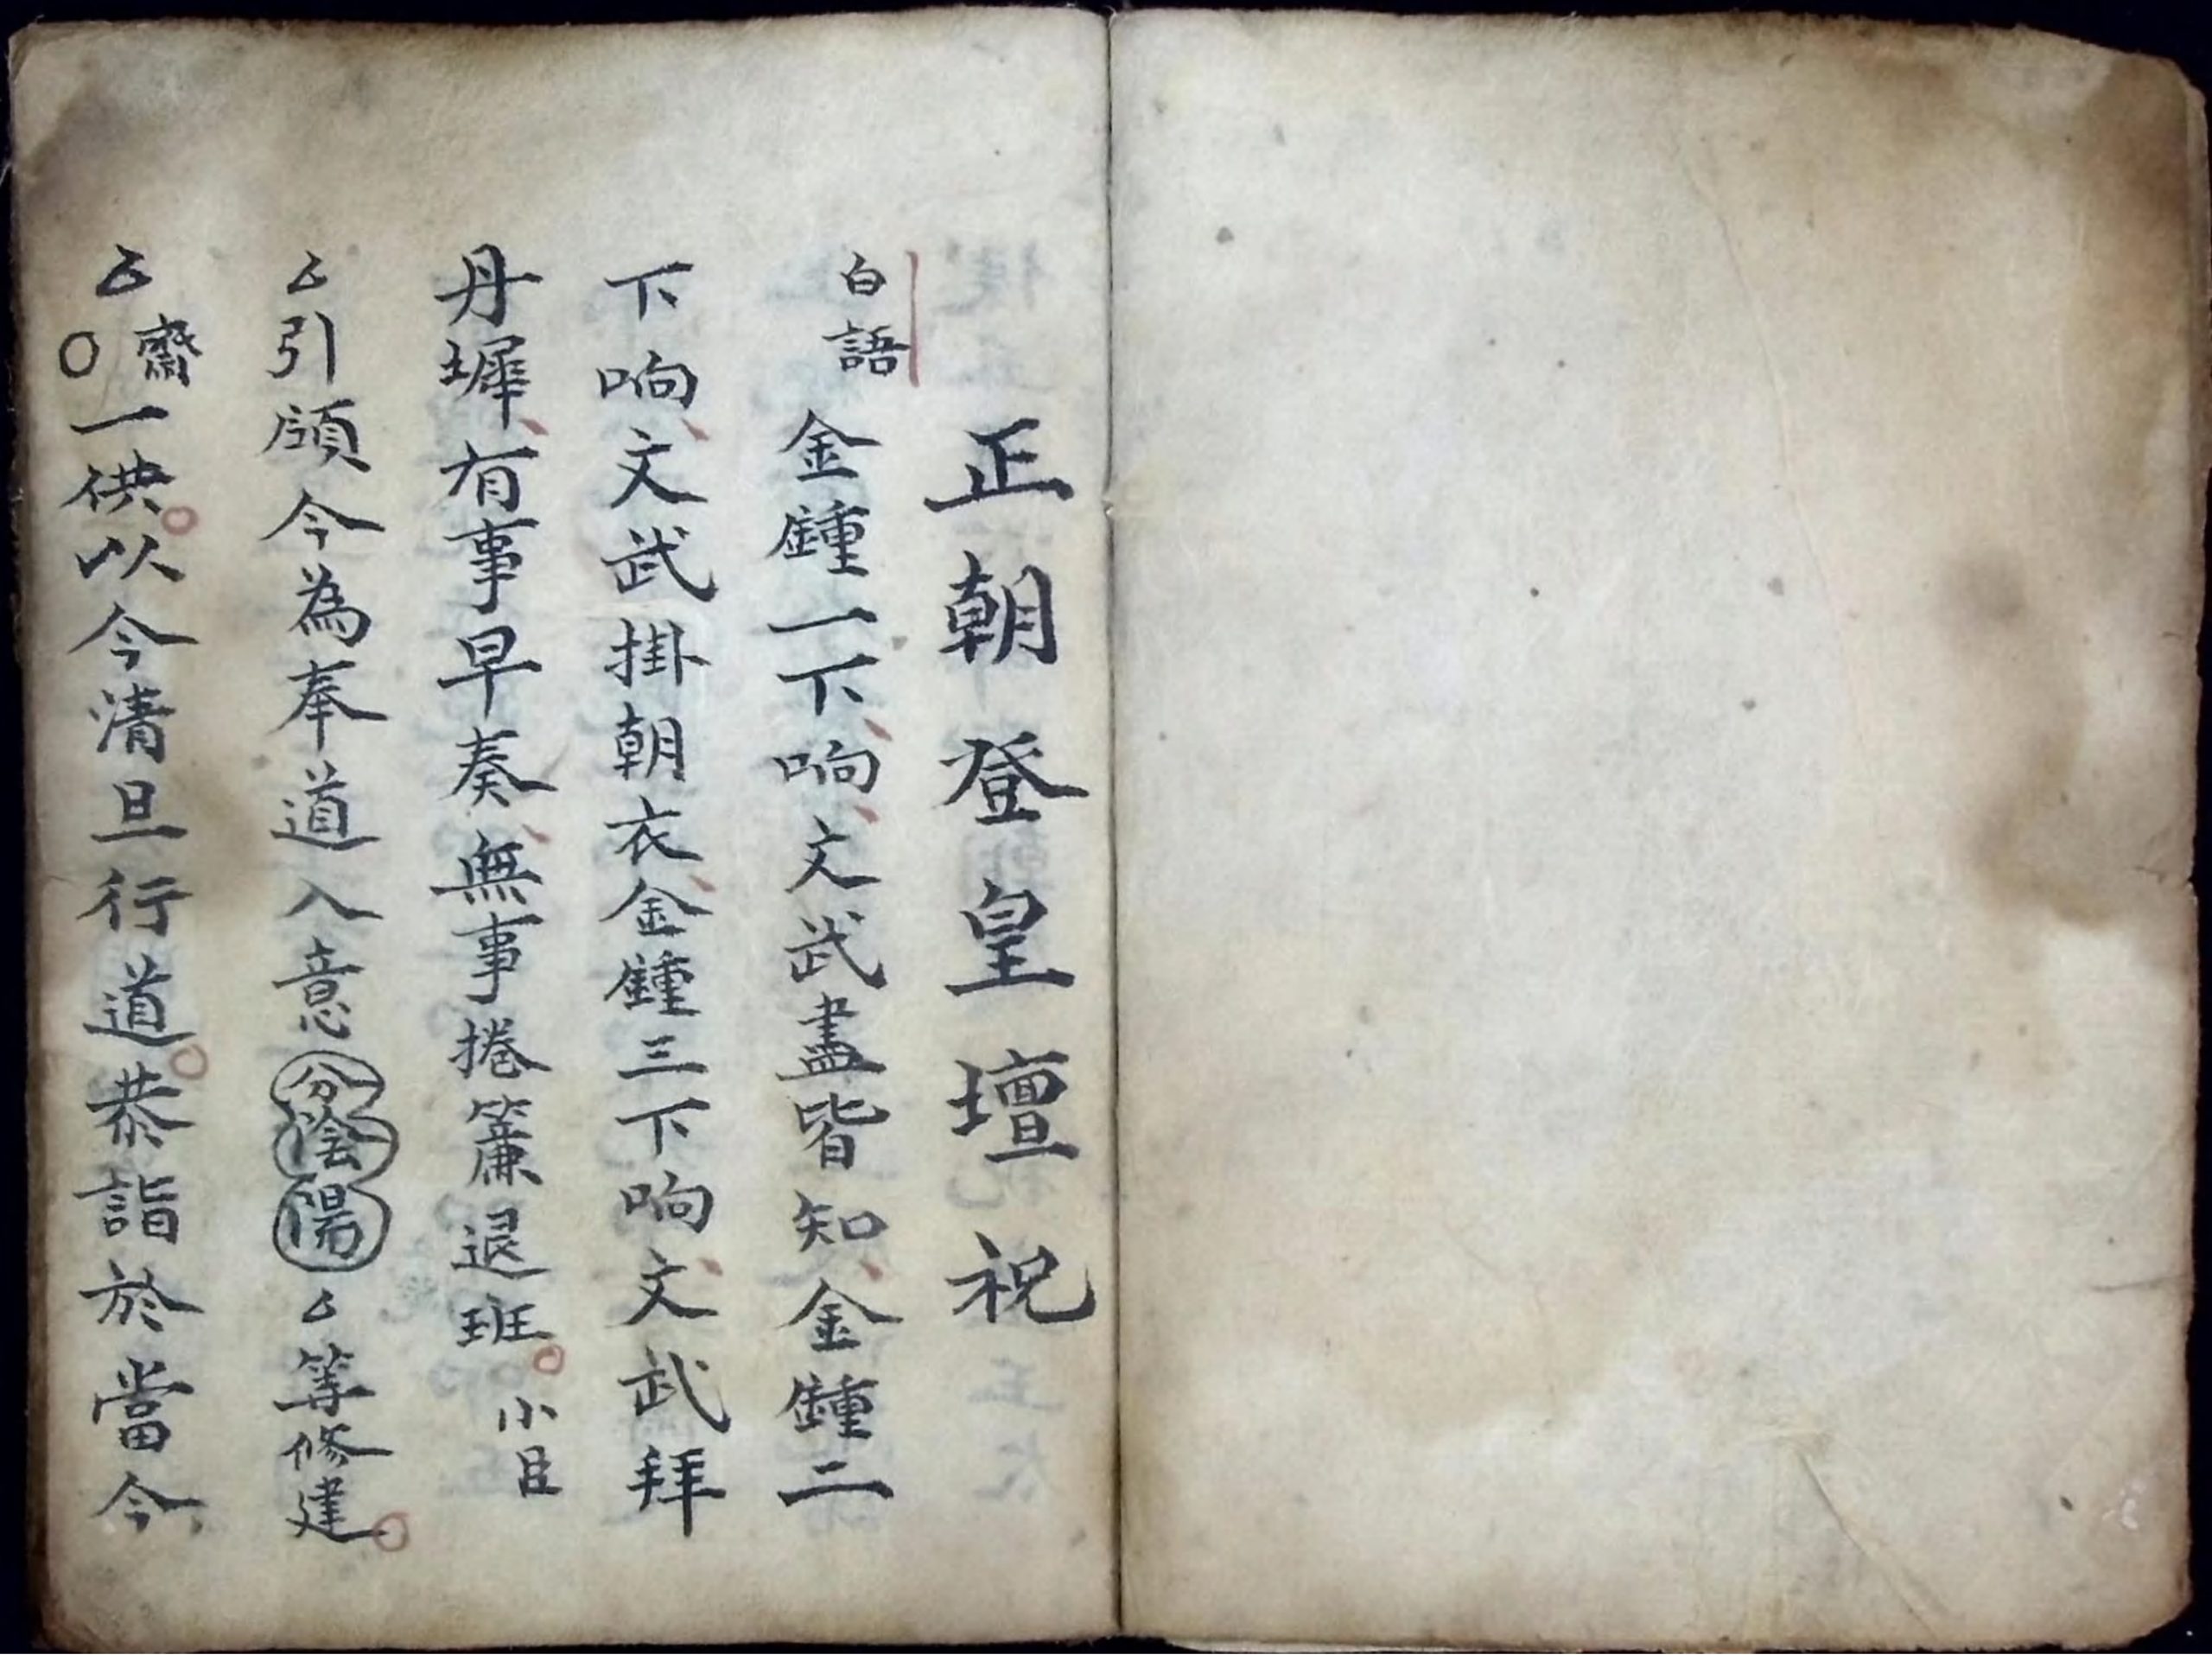 正朝登皇壇祝
白語 金鍾一下响文武盡皆知金鍾二
下响文武掛朝衣金鍾三下响文武拜
丹墀有事早奏無事捲簾退班小臣
厶引領今為奉道入意分陰陽厶等修建
厶齋一供以今清旦行道恭詣於當今